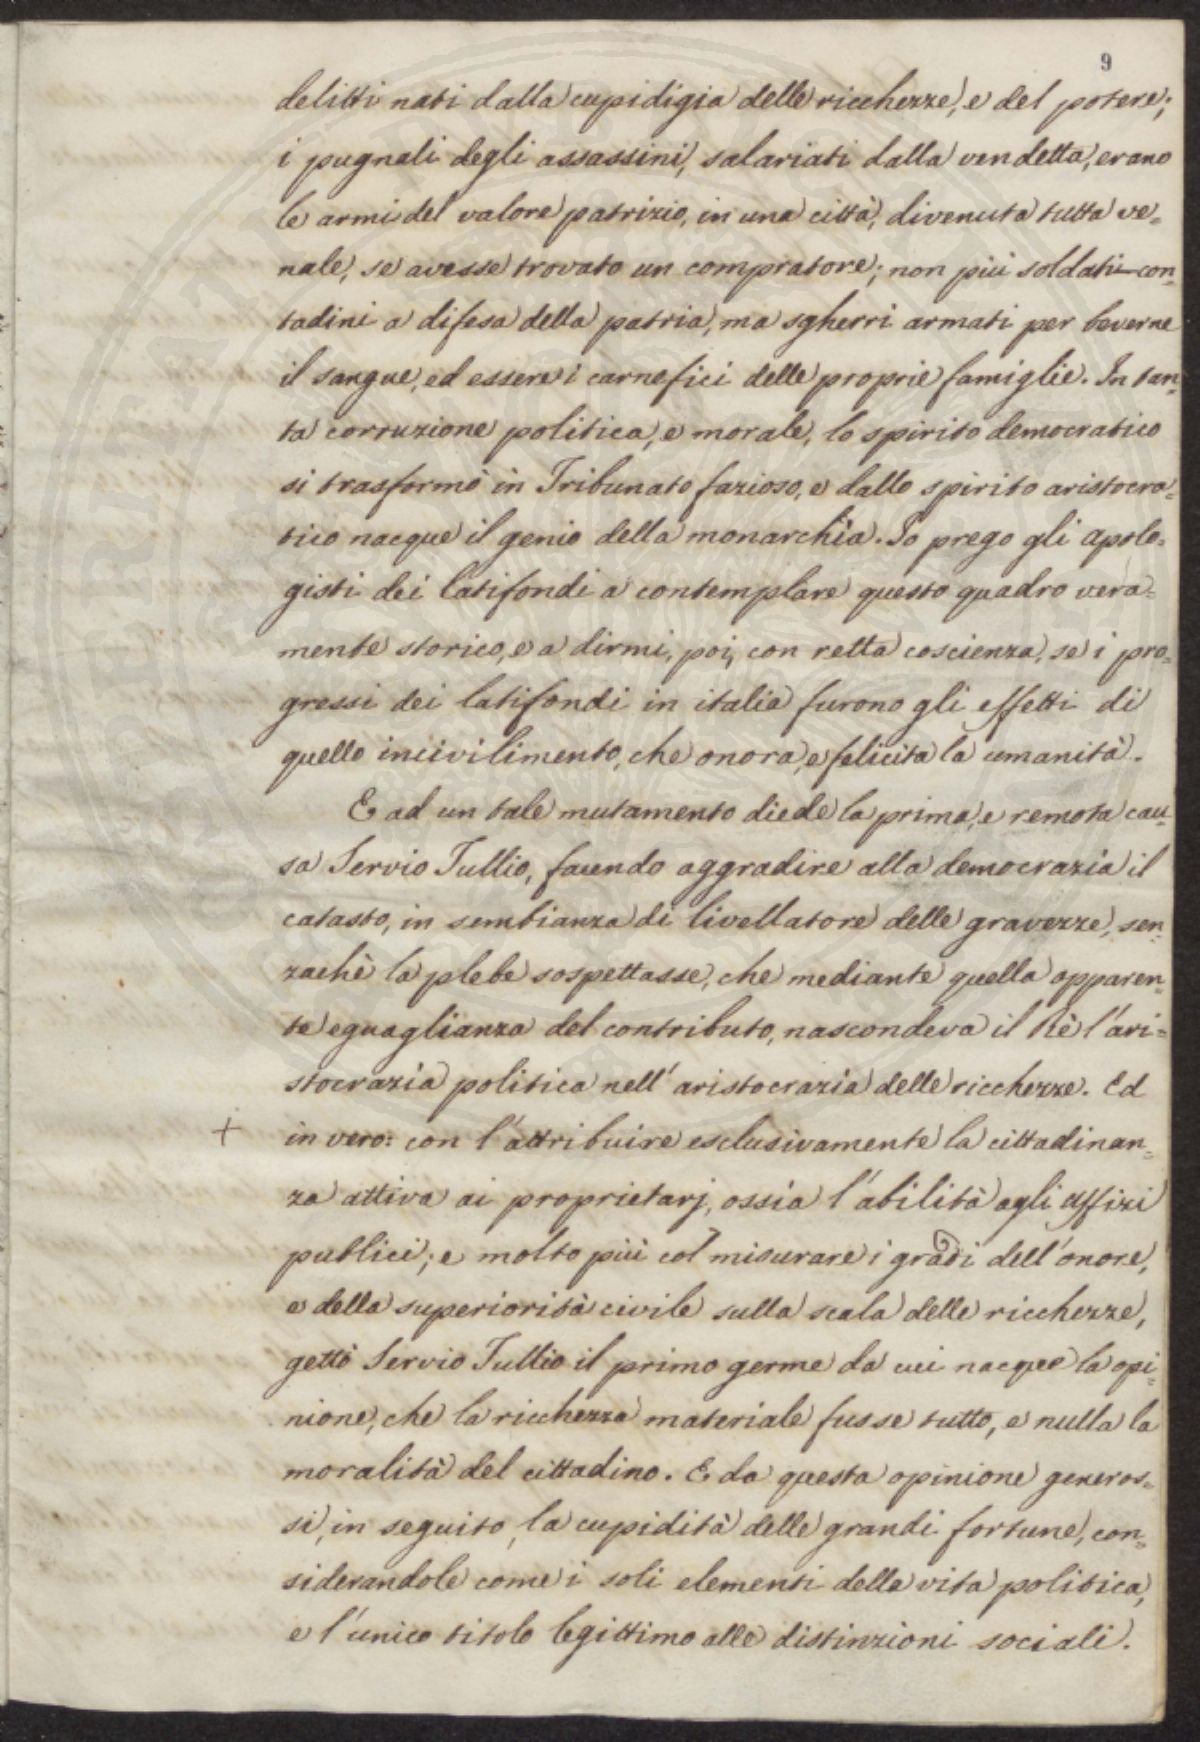 9
delitti nati dalla cupidigia delle ricchezze, e del potere;
i pugnali degli assassini, salariati dalla vendetta, erano
le armi del valore patrizio, in una città, divenuta tutta ve=
nale, se avesse trovato un compratore; non più soldati-con=
tadini a difesa della patria, ma sgherri armati per beverne
il sangue, ed essere i carnefici delle proprie famiglie. In tan=
ta corruzione politica, e morale, lo spirito democratico
si trasformò in Tribunato fazioso, e dallo spirito aristocra=
tico nacque il genio della monarchia. Io prego gli apolo=
gisti dei latifondi a contemplare questo quadro vera=
mente storico, e a dirmi, poi, con retta coscienza, se i pro=
gressi dei latifondi in italia furono gli effetti di
quello incivilimento, che onora, e felicita la umanità.
E ad un tale mutamento diede la prima, e remota cau=
sa Servio Tullio, facendo aggradire alla democrazia il
catasto, in sembianza di livellatore delle gravezze, sen=
zachè la plebe sospettasse, che mediante quella apparen=
te eguaglianza del contributo, nascondeva il Rè l'ari=
stocrazia politica nell'aristocrazia delle ricchezze. Ed
+ in vero: con l'attribuire esclusivamente la cittadinan=
za attiva ai proprietarj, ossia l'abilità agli uffizi
publici; e molto più col misurare i gradi dell'onore,
e della superiorità civile sulla scala delle ricchezze,
gettò Servio Tullio il primo germe da cui nacque la opi=
nione, che la ricchezza materiale fusse tutto, e nulla la
moralità del cittadino. E da questa opinione generos=
si, in seguito, la cupidità delle grandi fortune, con=
siderandole come i soli elementi della vita politica,
e l'unico titolo legittimo alle distinzioni sociali.